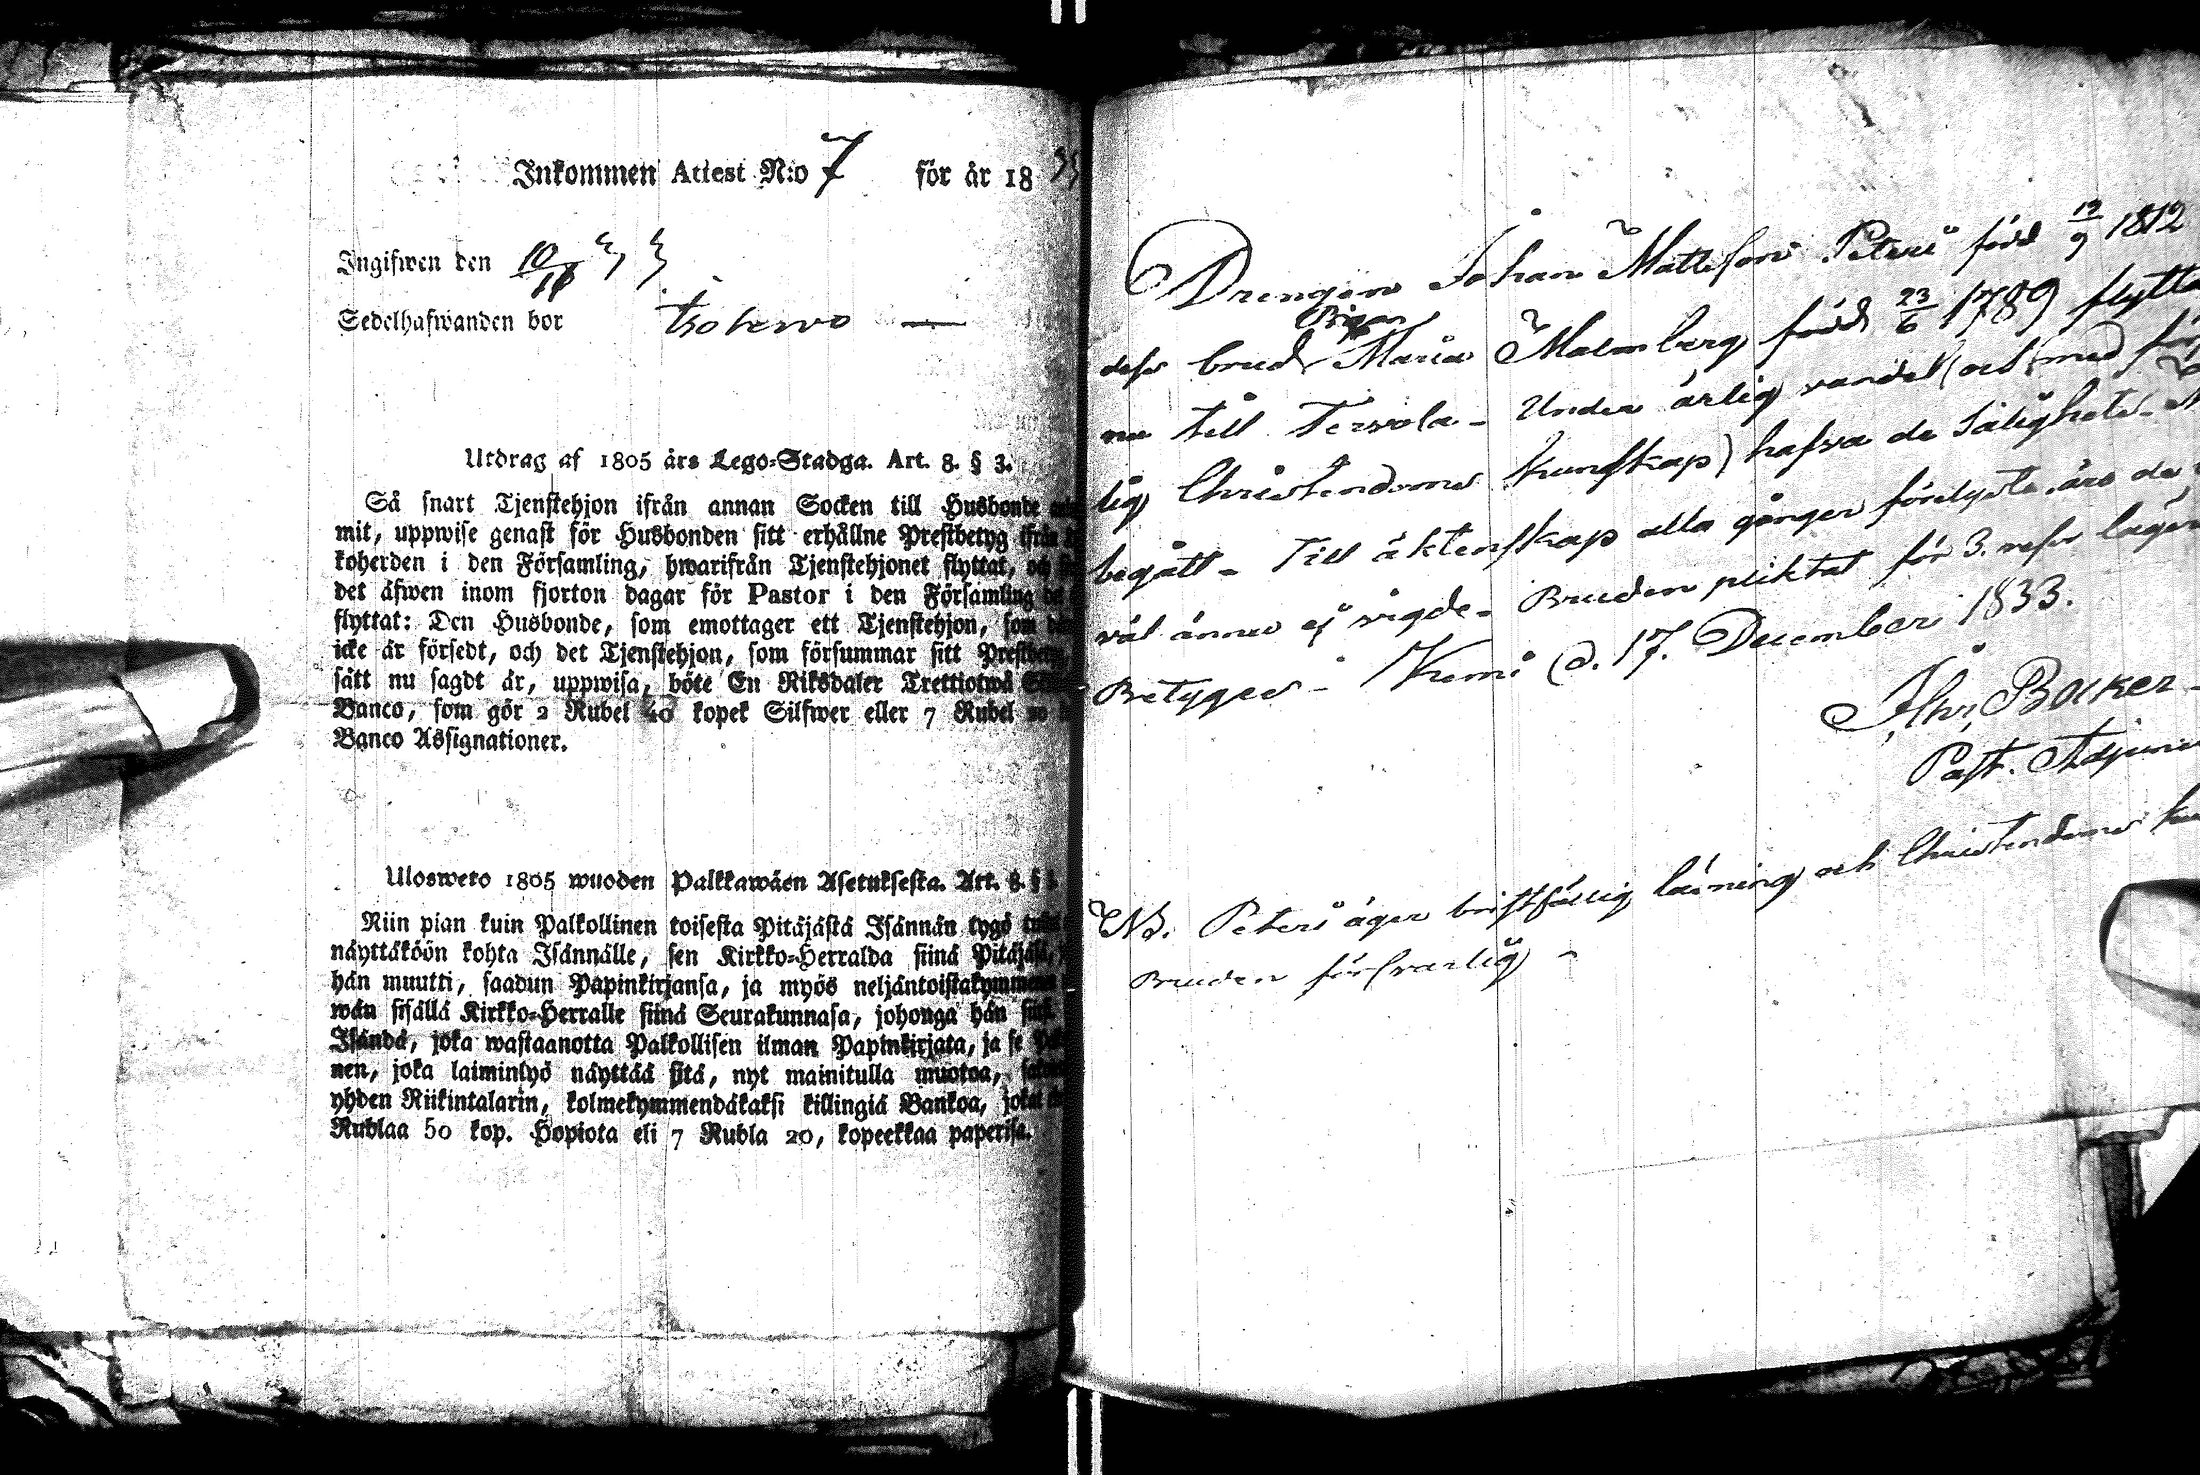 Inkommen Attest N:o 7 för år 18 33
Ingifwen den 10/11 33
Sedelhafwanden bor
Utdrag af 1805 års Lego-Stadga. Art. 8. § 3.
Så snart Tjenstehjon ifrån annan Socken till Husbonde
mit, uppwise genast för Husbonden sitt erhållne Prestbetyg ifrån
koherden i den Församling, hwarifrån Tjenstehjonet flyttat,
det äfwen inom fjorton dagar för Pastor i den Församling
flyttat: Den Husbonde, som emottager ett Tjenstehjon, som
icke är försedt, och det Tjenstehjon, som försummar sitt
sätt nu sagdt är, uppwisa, böte En Riksdaler Trettiotwå
Banco, som gör 2 Rubel 40 kopek Silfwer eller 7 Rubel
Banco Assignationer.
Ulosweto 1805 wuoden Palkkawäen Asetuksesta. Art. 8. §
Niin pian kuin Palkollinen toisesta Pitäjästä Isännän tygö
näyttäköön kohta Isännälle, sen Kirkko-Herralda siinä
hän muutti, saadun Papinkirjansa, ja myös
wän sisällä Kirkko-Herralle siinä Seurakunnasa, johonga hän
Isändä, joka wastaanotta Palkollisen ilman Papinkirjata, ja se
nen, joka laiminlyö näyttää sitä, nyt mainitulla muotoa,
yhden Riikintalarin, kolmekymmendäkaksi killingiä Bankoa,
Rublaa 50 kop. Hopiota eli 7 Rubla 20, kopeekkaa paperisa.
Drengen Johan Mattsson Peteri född 12/9 1812
dess brud Pigan Maria Malmberg född 23/6 1789 flytta
nu till Tervola - Under ärlig vandel (och med
lig Christendoms kunskap) hafva de Salighets-
begått - Till äktenskap alla gånger förelyste, äro de
väl ännu ej vigde. Bruden pliktat för 3. resn
Betygar - Kemi d. 17. December 1833.
Past.
NB. Peteri äger bristfällig läsning och Christendoms
Bruden försvarlig -